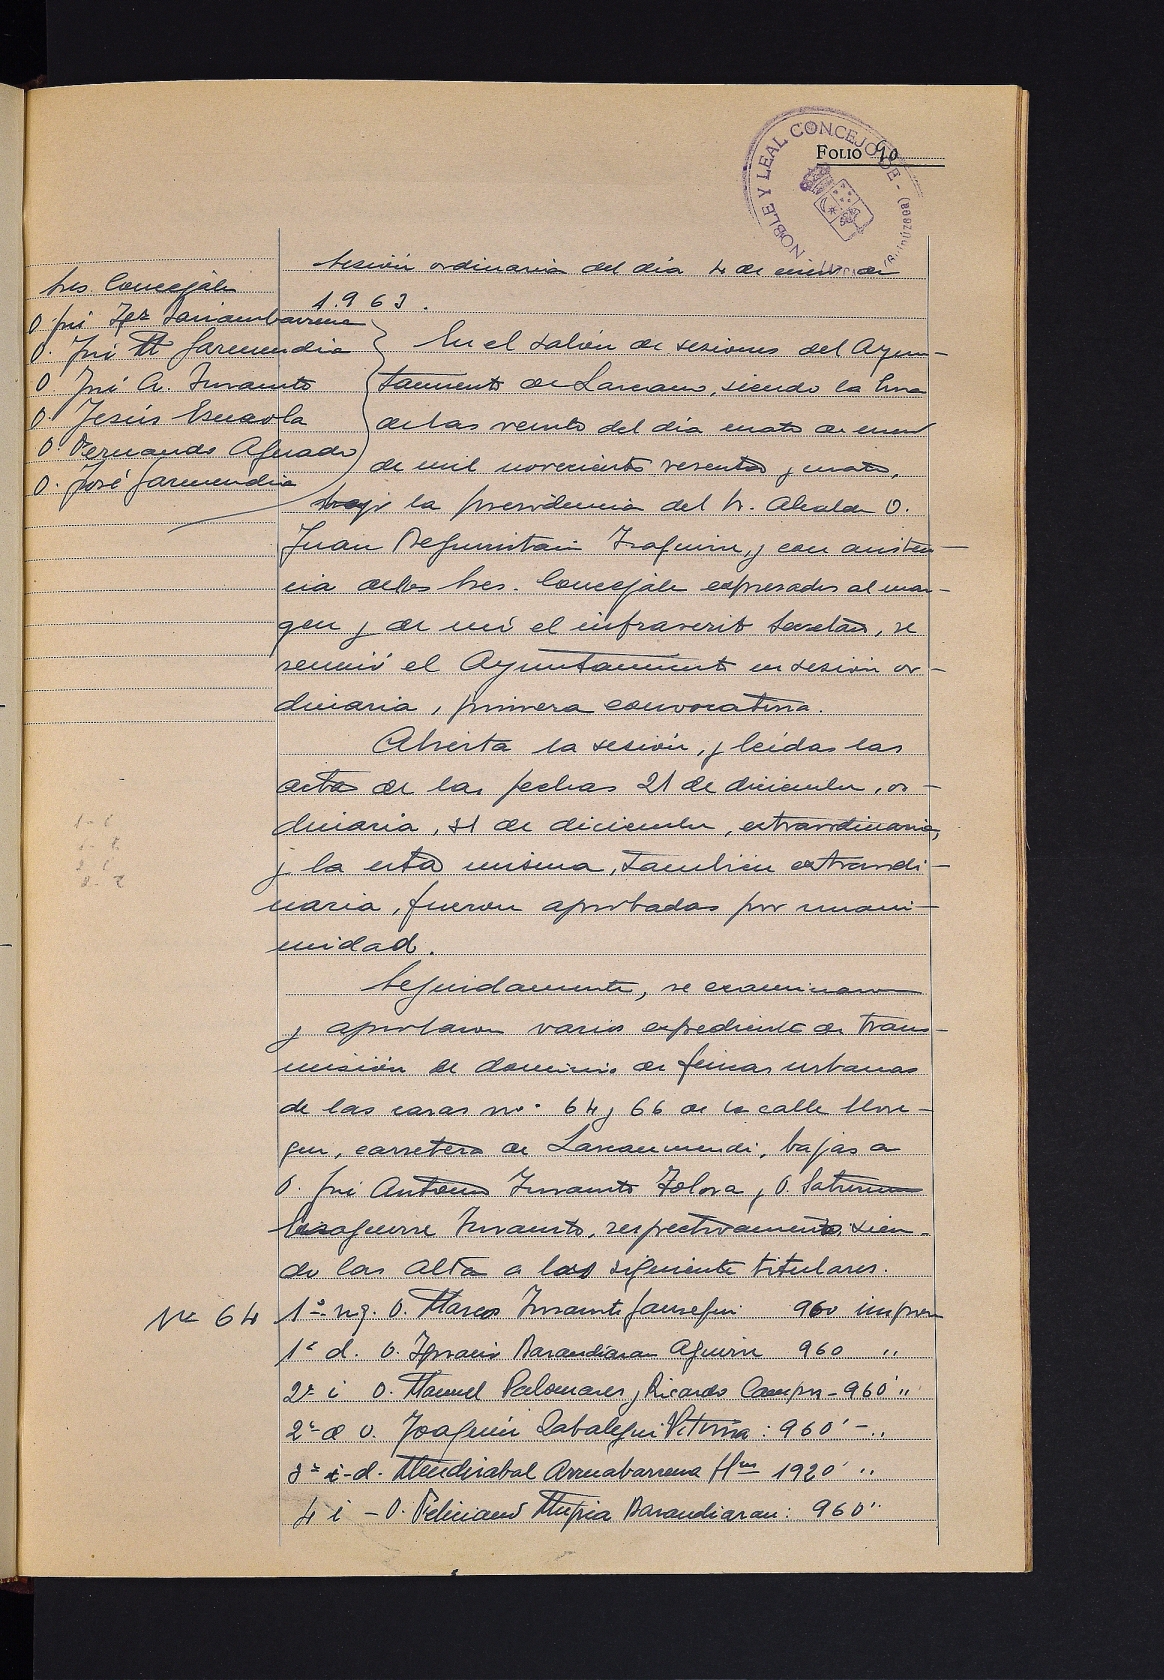 NOBLE Y LEAL CONCEJO DE
FOLIO 90
Sesión ordinaria del día 4 de enero de
1.963.
Sres Concejales
D. José
D. José Mª Garmendia
D. José A. Insausti
D. Jesús
D. Fernando Aguado
D. José Garmendia
En el salón de sesiones del Ayun-
tamiento de Lazcano, siendo la hora
de las veinte del día cuatro de enero
de mil novecientos sesenta y cuatro,
bajo la presidencia del Sr. Alcalde D.
Juan Beguiristain y con asisten-
cia de los Sres. Concejales expresados al mar-
gen y de mí el infrascrito Secretario, se
reunió el Ayuntamiento en sesión or-
dinaria, primera convocatoria.
Abierta la sesión, y leidas las
actas de las fechas 21 de diciembre, or-
dinaria, 31 de diciembre, extraordinaria,
y la esta misma, tambien extraordi-
naria, fueron aprobadas por unani-
midad.
Seguidamente, se examinaron
y aprobaron varios expedientes de trans-
misión de dominio de fincas urbanas
de las casas nº 64 y 66 de la calle
carretera de Lazcaomendi, bajas a
D. José Antonio Insausti y D. Saturnino
Insausti, respectivamente, sien-
do las alta a los siguiente titulares.
Nº 64 1º izq. D. Marcos Insausti Jauregui 960
1º d. D. Ignacio Barandiaran Aguirre 960 "
2º i D. Manuel Palomares y Ricardo Campos - 960 "
2º d D. Joaquín Zabalegui Vitoria: 960 - "
3º i-d. Mendizabal Arruabarrena Hnos 1920 "
4 i - D. Feliciano Mujica Barandiaran: 960 "